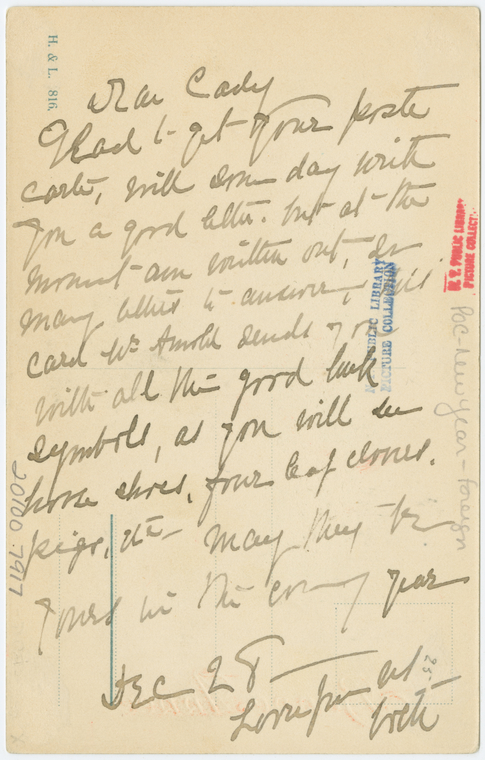 H. & L. 816.
Dear Cady
Glad to get your poste
carte, will some day write
you a good letter. but at the
moment am written out, so
many letters to answer, this
card Mr Arnold sends you
with all the good luck
symbols, as you will see
horse shoes, four leaf clovers.
pigs, etc – May they be
yours in the coming year
Dec 28
Love from at
N. Y. PUBLIC LIBRARY
PICTURE COLLECT.
PUBLIC LIBRARY
PICTURE COLLECTION
PC-New Year-Foreign
20100.7917
25